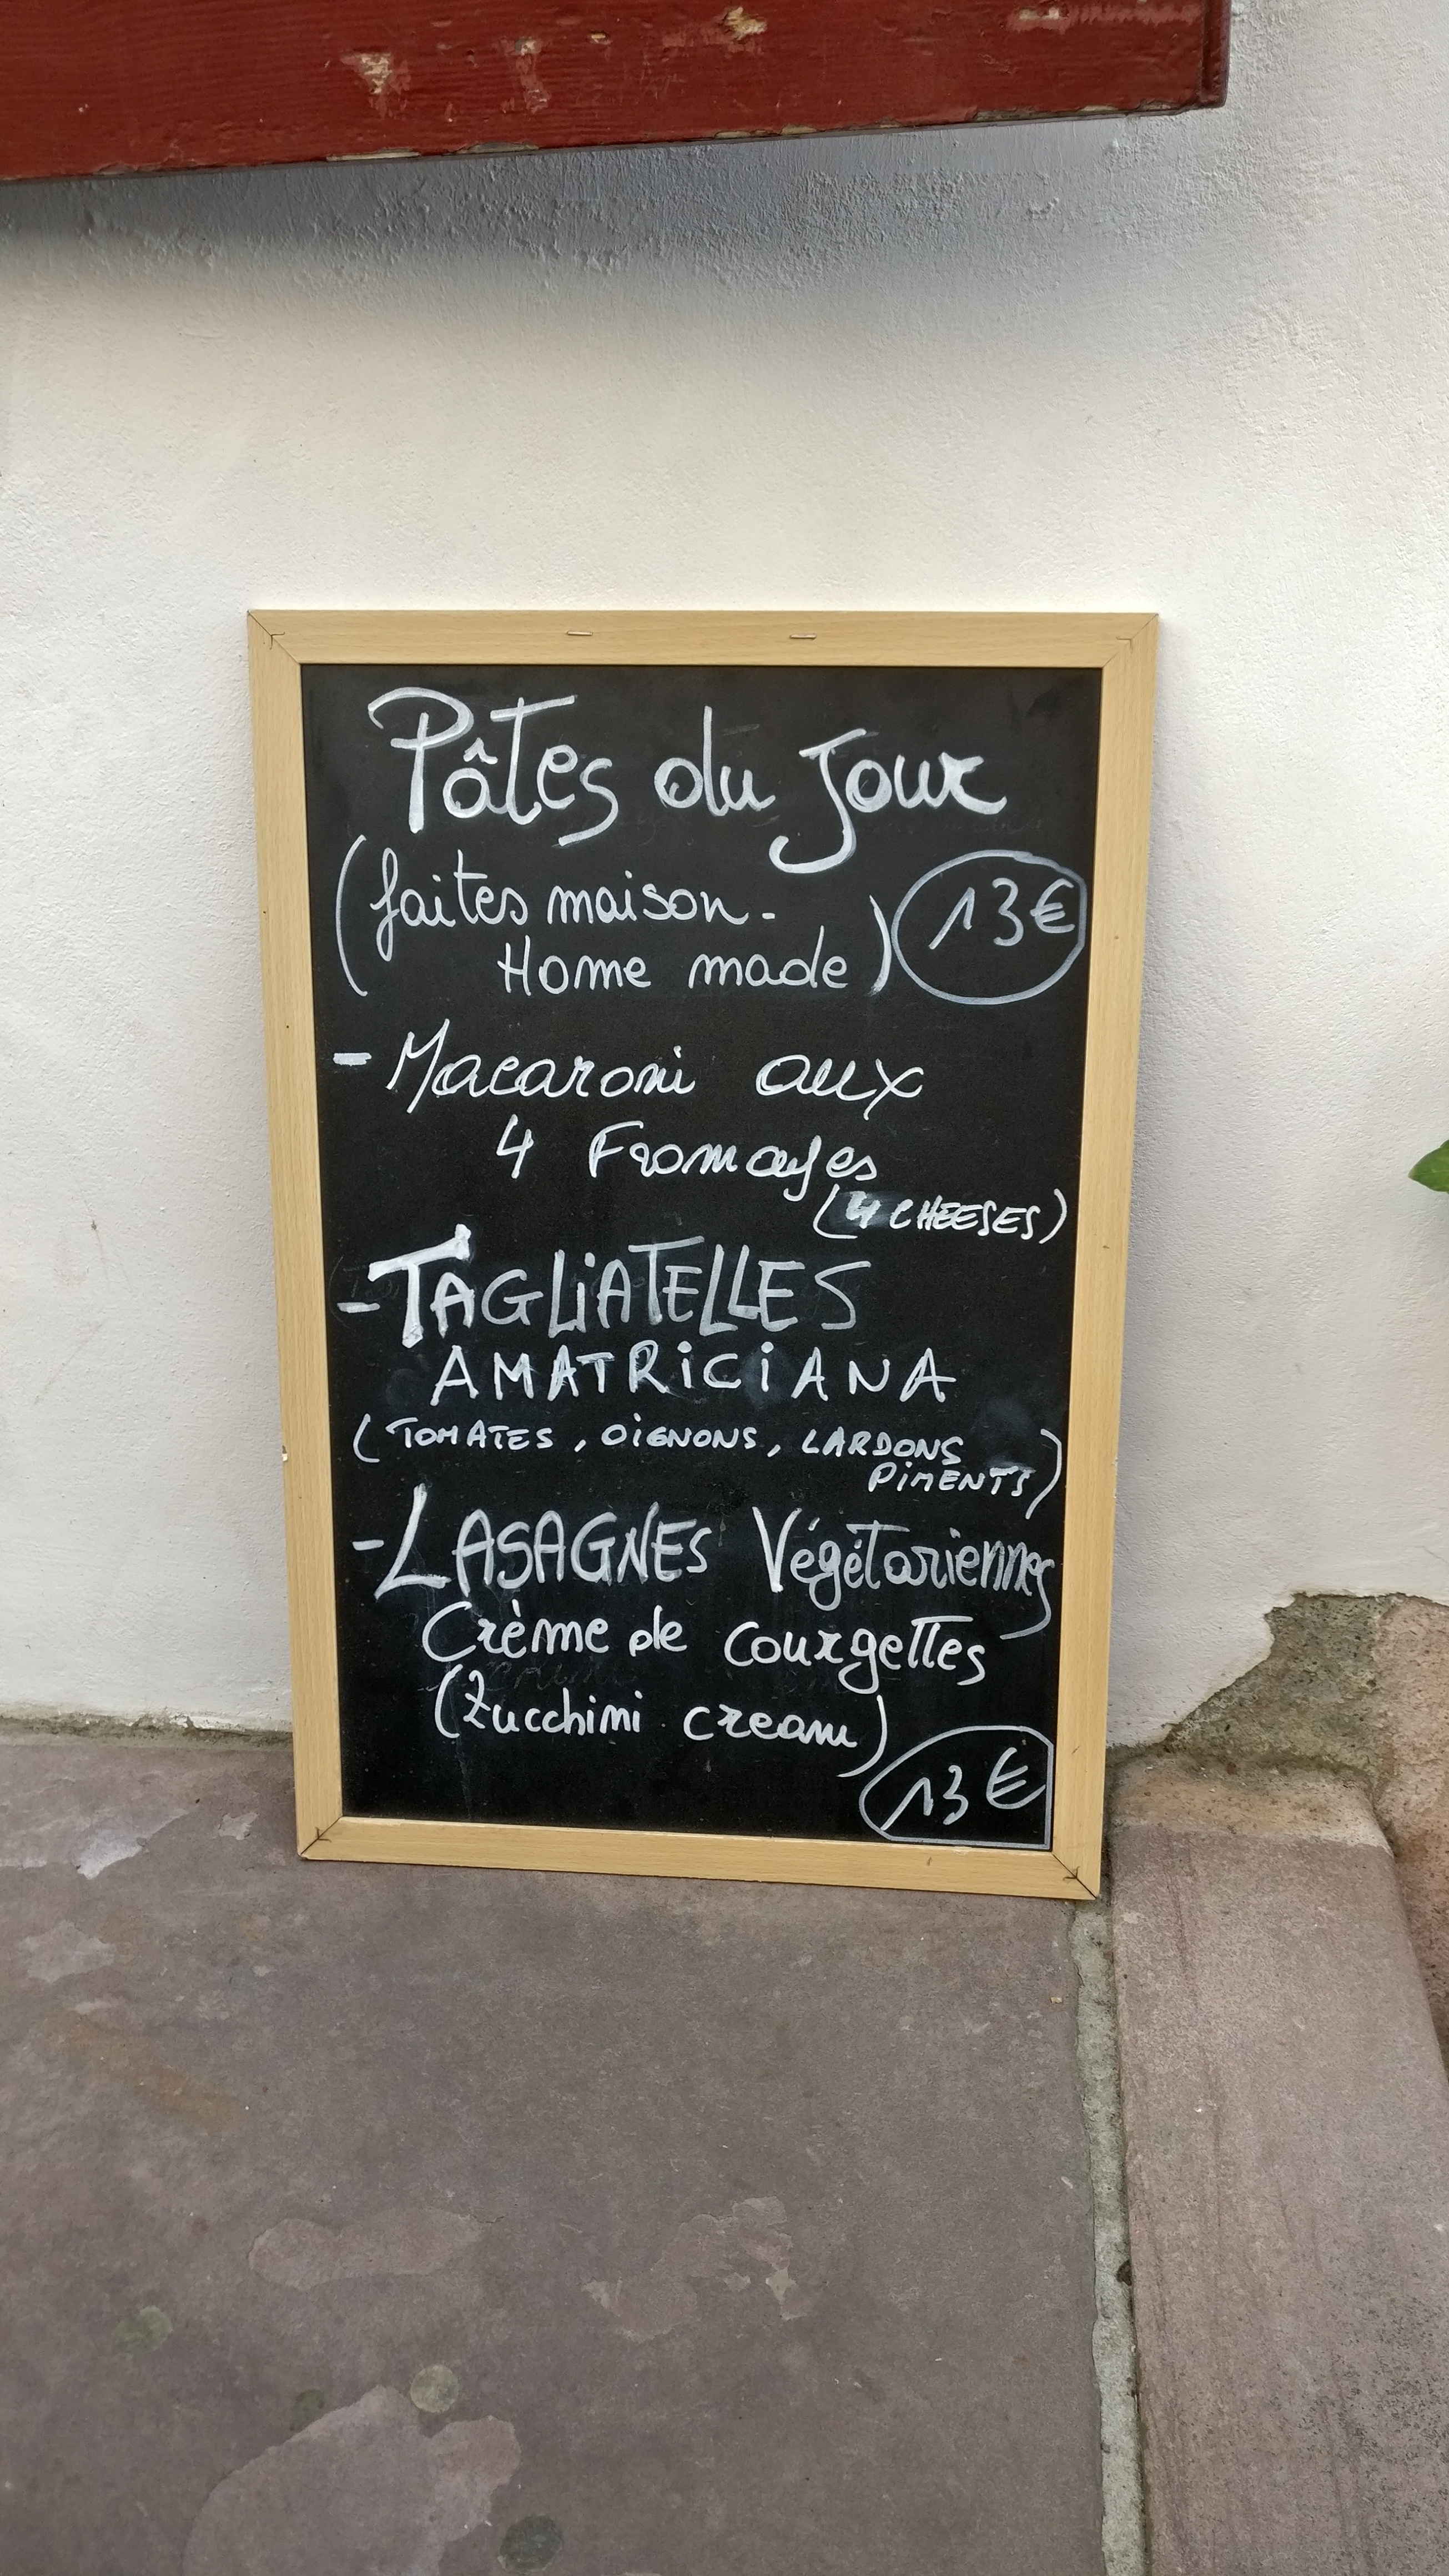 Pâtes du Jour
(faites maison -
Home made)
13€
- Macaroni aux
4 Fromages
(4 CHEESES)
- TAGLiATELLES
AMATRiCiANA
(TOMATES, OiGNONS, LARDONS
PiMENTS)
- LASAGNES Végétariennes
Crème de courgettes
(Zucchini cream)
13€